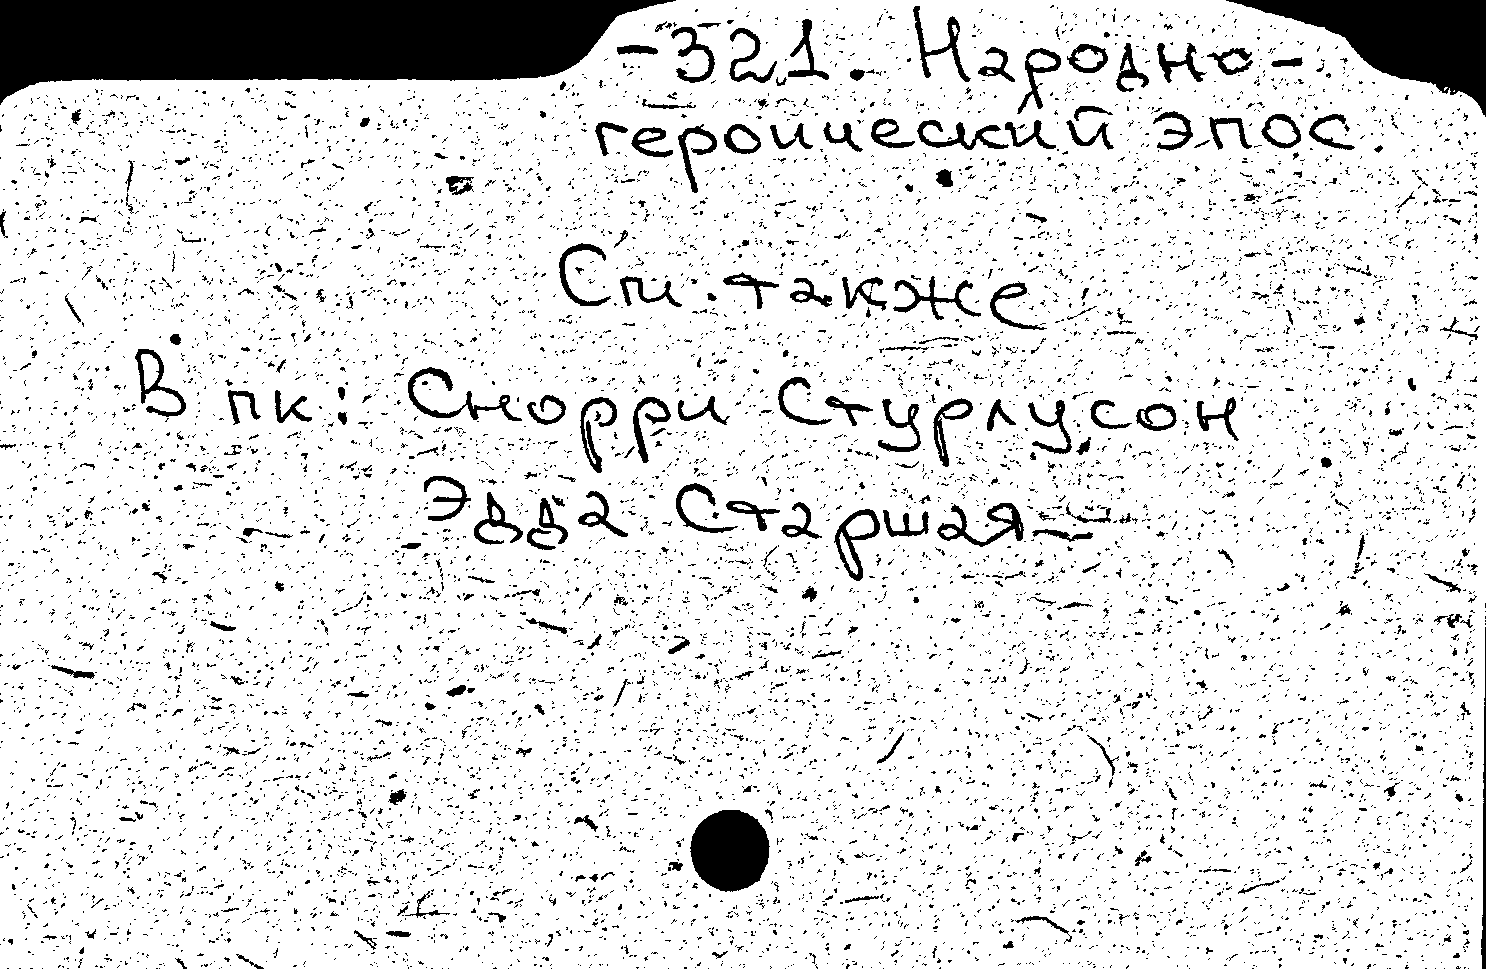 -321. Народно-
героический эпос.
См. также
В пк: Снорри Стурлусон
Эдда Старшая